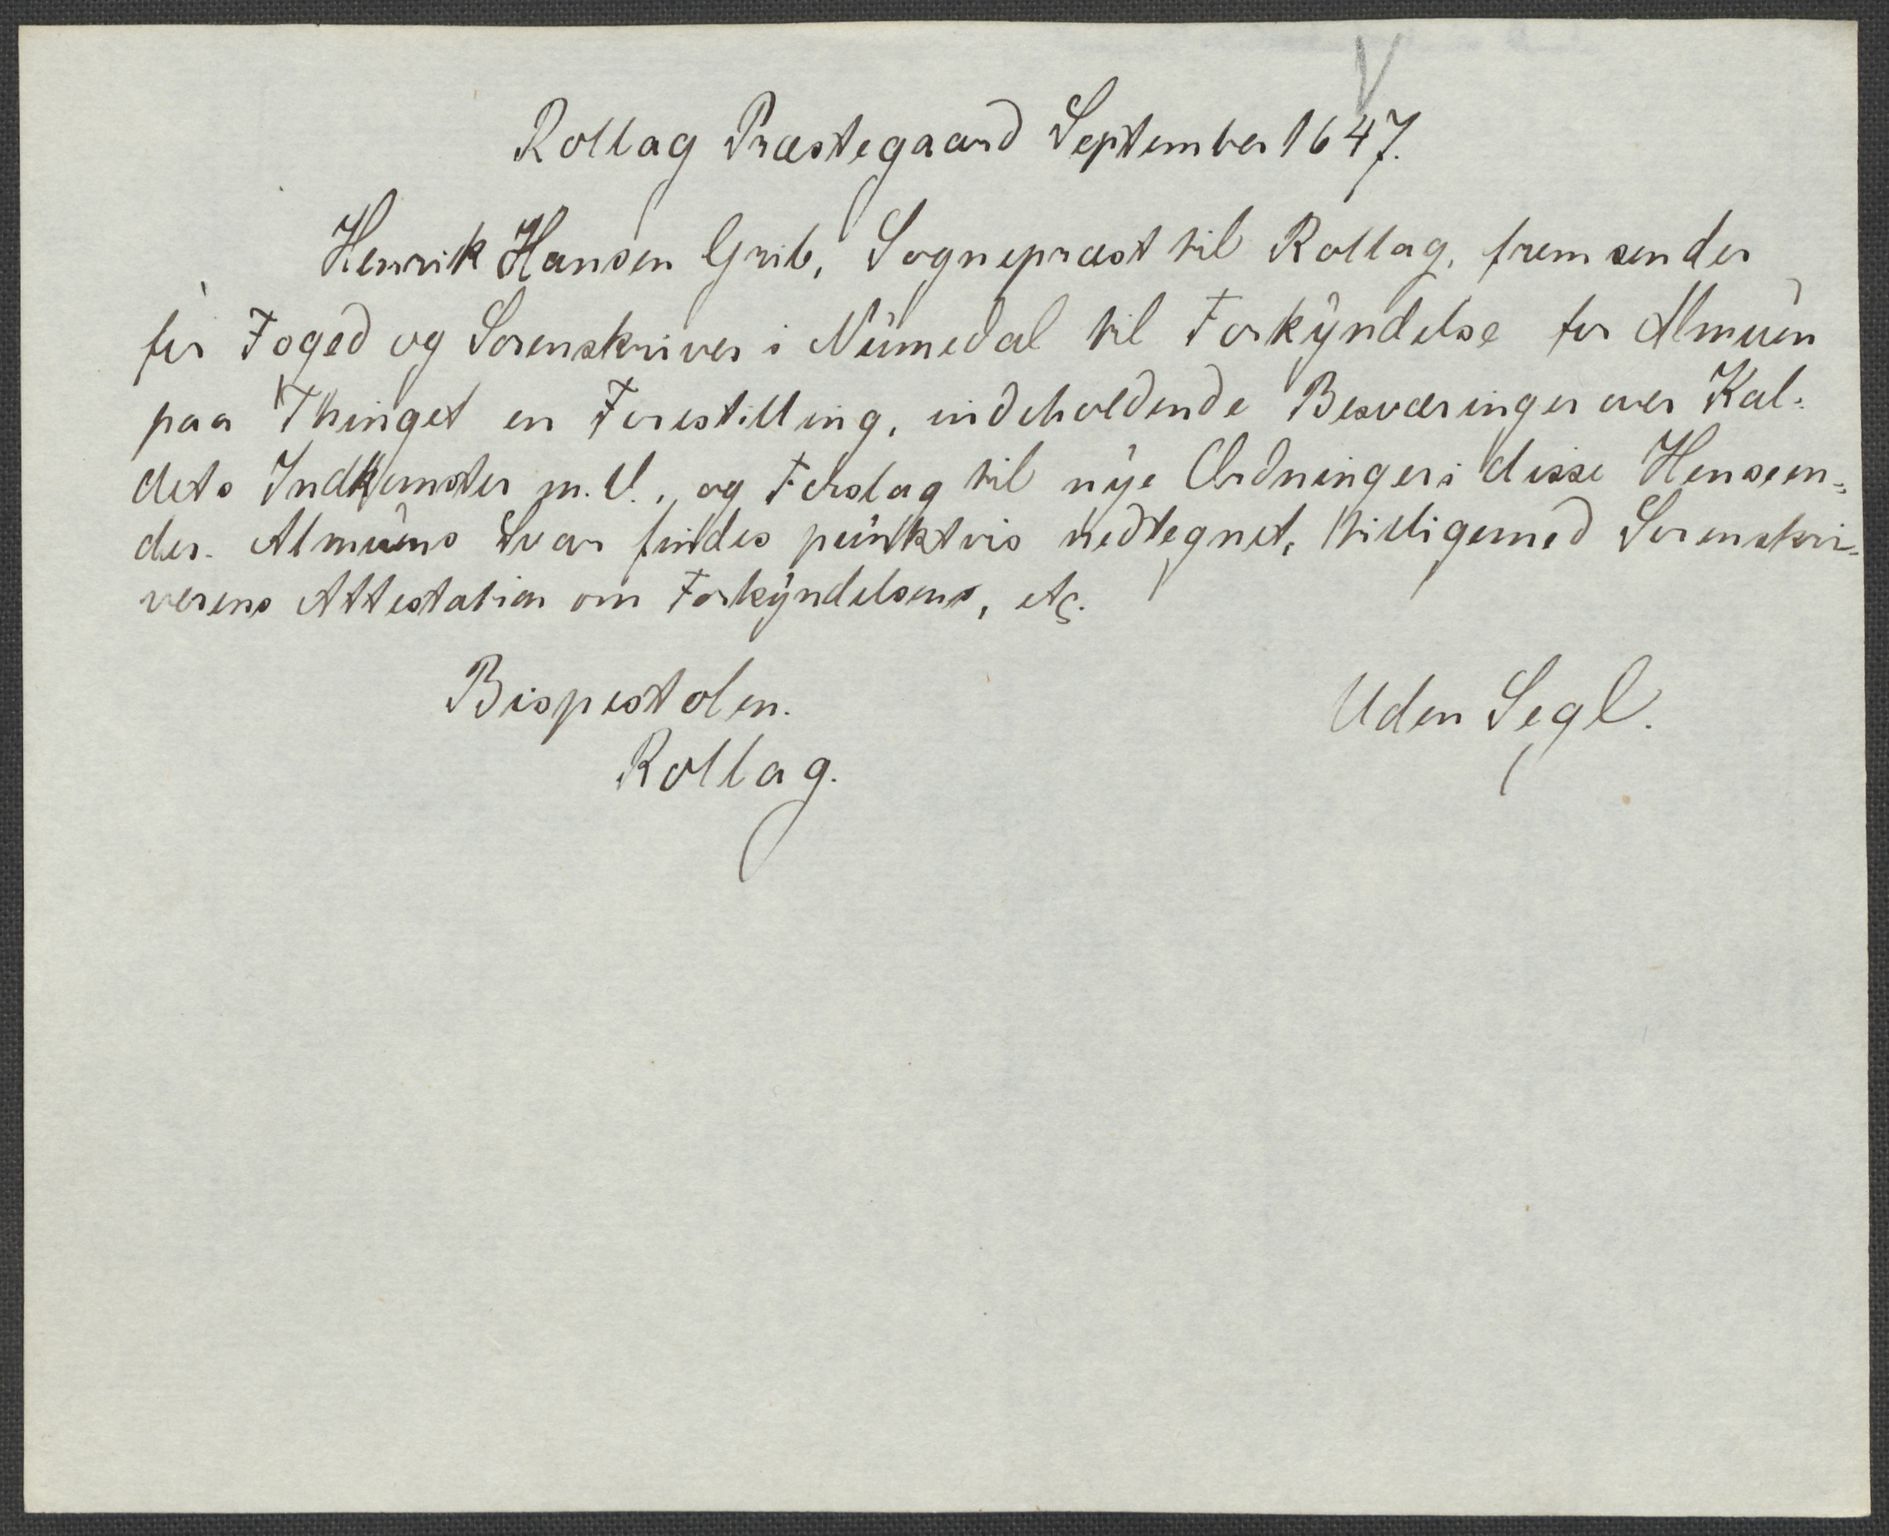 V
Rollag Præstegaard September 1647.
Henrik Hansen Grib, Sognepræst til Rollag, fremsender
for Foged og Sorenskriver i Numedal til Forkyndelse for Almuen
paa Thinget en Forestilling, indeholdende Besværinger over Kal-
dets Indkomster m.V., og Forslag til nye Ordninger i disse Henseen-
der. Almuens Svar findes punktvis nedtegnet, tilligemed Sorenskri-
verens Attestation om Forkyndelsens, etc.
Bispestolen.
Rollag.
Uden Segl.